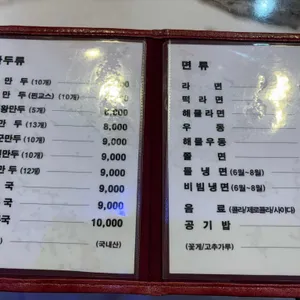 만두류
만 두 (10개)
만 두 (핀교스) (10개)
황만두 (5개) 6,000
만 두 (13개) 8,000
군만두 (10개) 9,000
만두 (10개) 9,000
만 두 (12개) 9,000
국 9,000
국 9,000
국 10,000
(국내산)
면 류
라 면
떡 라 면
해물라면
우 동
해물우동
쫄 면
물 냉 면 (6월~8월)
비빔냉면 (6월~8월)
음 료 (콜라/제로콜라/사이다)
공 기 밥
(꽃게/고추가루)